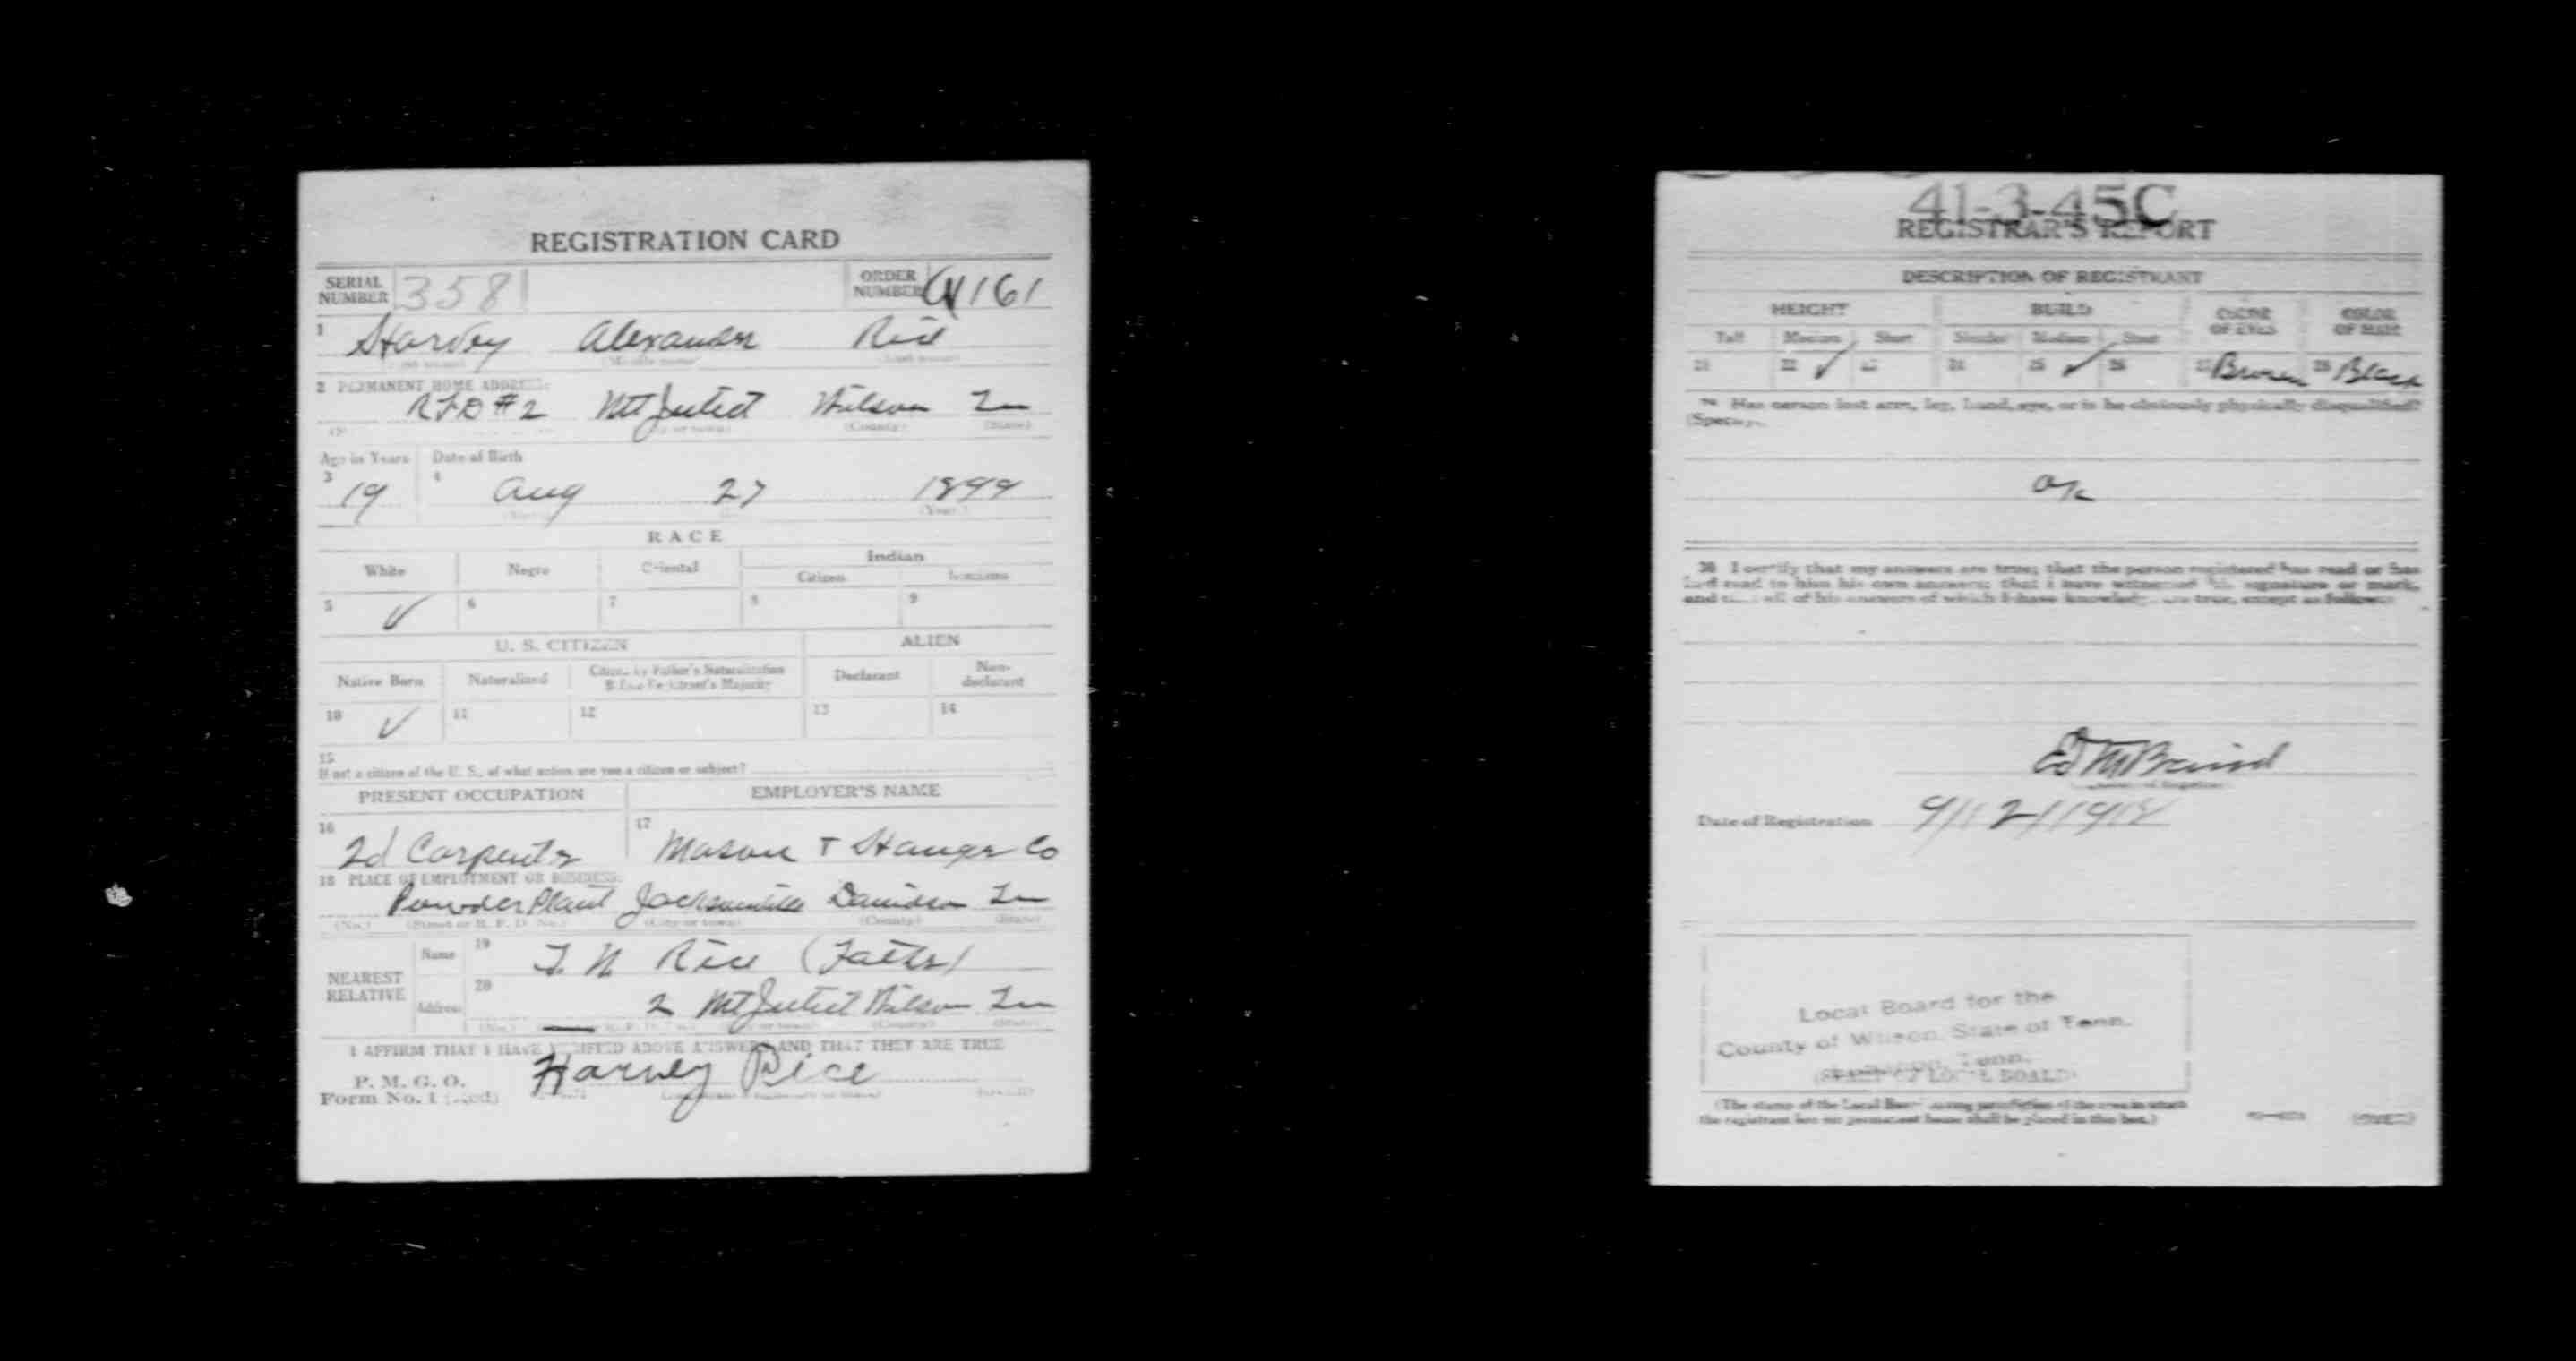 REGISTRATION CARD
SERIAL NUMBER 358 ORDER NUMBER A1161
1 Harvey Alexander Rice
2 PERMANENT HOME ADDRESS:
RFD #2 Mt Juliet Wilson Tn
(County) (State)
Age in Years Date of Birth
3 19 4 Aug 27 1899
(Year)
RACE
White Negro Oriental Indian
Citizen
5 ✓ 6 7 8 9
U. S. CITIZEN ALIEN
Native Born Naturalized Citizen by Father's Naturalization Before Registrant's Majority Declarant Non-declarant
10 ✓ 11 12 13 14
15
If not a citizen of the U. S., of what nation are you a citizen or subject?
PRESENT OCCUPATION EMPLOYER'S NAME
16 2d Carpenter 17 Mason + Hanger Co
18 PLACE OF EMPLOYMENT OR BUSINESS:
Powder Plant Jacksonville Davidson Tn
(No.) (Street or R. F. D. No.) (City or town) (County) (State)
NEAREST RELATIVE
Name 19 T. N Rice (Father)
Address 20 2 Mt Juliet Wilson Tn
I AFFIRM THAT I HAVE VERIFIED ABOVE ANSWERS AND THAT THEY ARE TRUE
P. M. G. O.
Form No. 1 (Red) Harvey Rice
41-3-45C
REGISTRAR'S REPORT
DESCRIPTION OF REGISTRANT
HEIGHT BUILD COLOR OF EYES COLOR OF HAIR
Tall Medium Short Slender Medium Stout
21 22 ✓ 23 24 25 ✓ 26 27 Brown 28 Black
29 Has person lost arm, leg, hand, eye, or is he obviously physically disqualified?
(Specify).
OK
30 I certify that my answers are true; that the person registered has read or has
had read to him his own answers; that I have witnessed his signature or mark,
and that all of his answers of which I have knowledge are true, except as follows:
Date of Registration 9/12/1918
Local Board for the
County of Wilson, State of Tenn.
Lebanon, Tenn.
(STAMP OF LOCAL BOARD)
(The stamp of the Local Board having jurisdiction of the area in which
the registrant has his permanent home shall be placed in this box.)